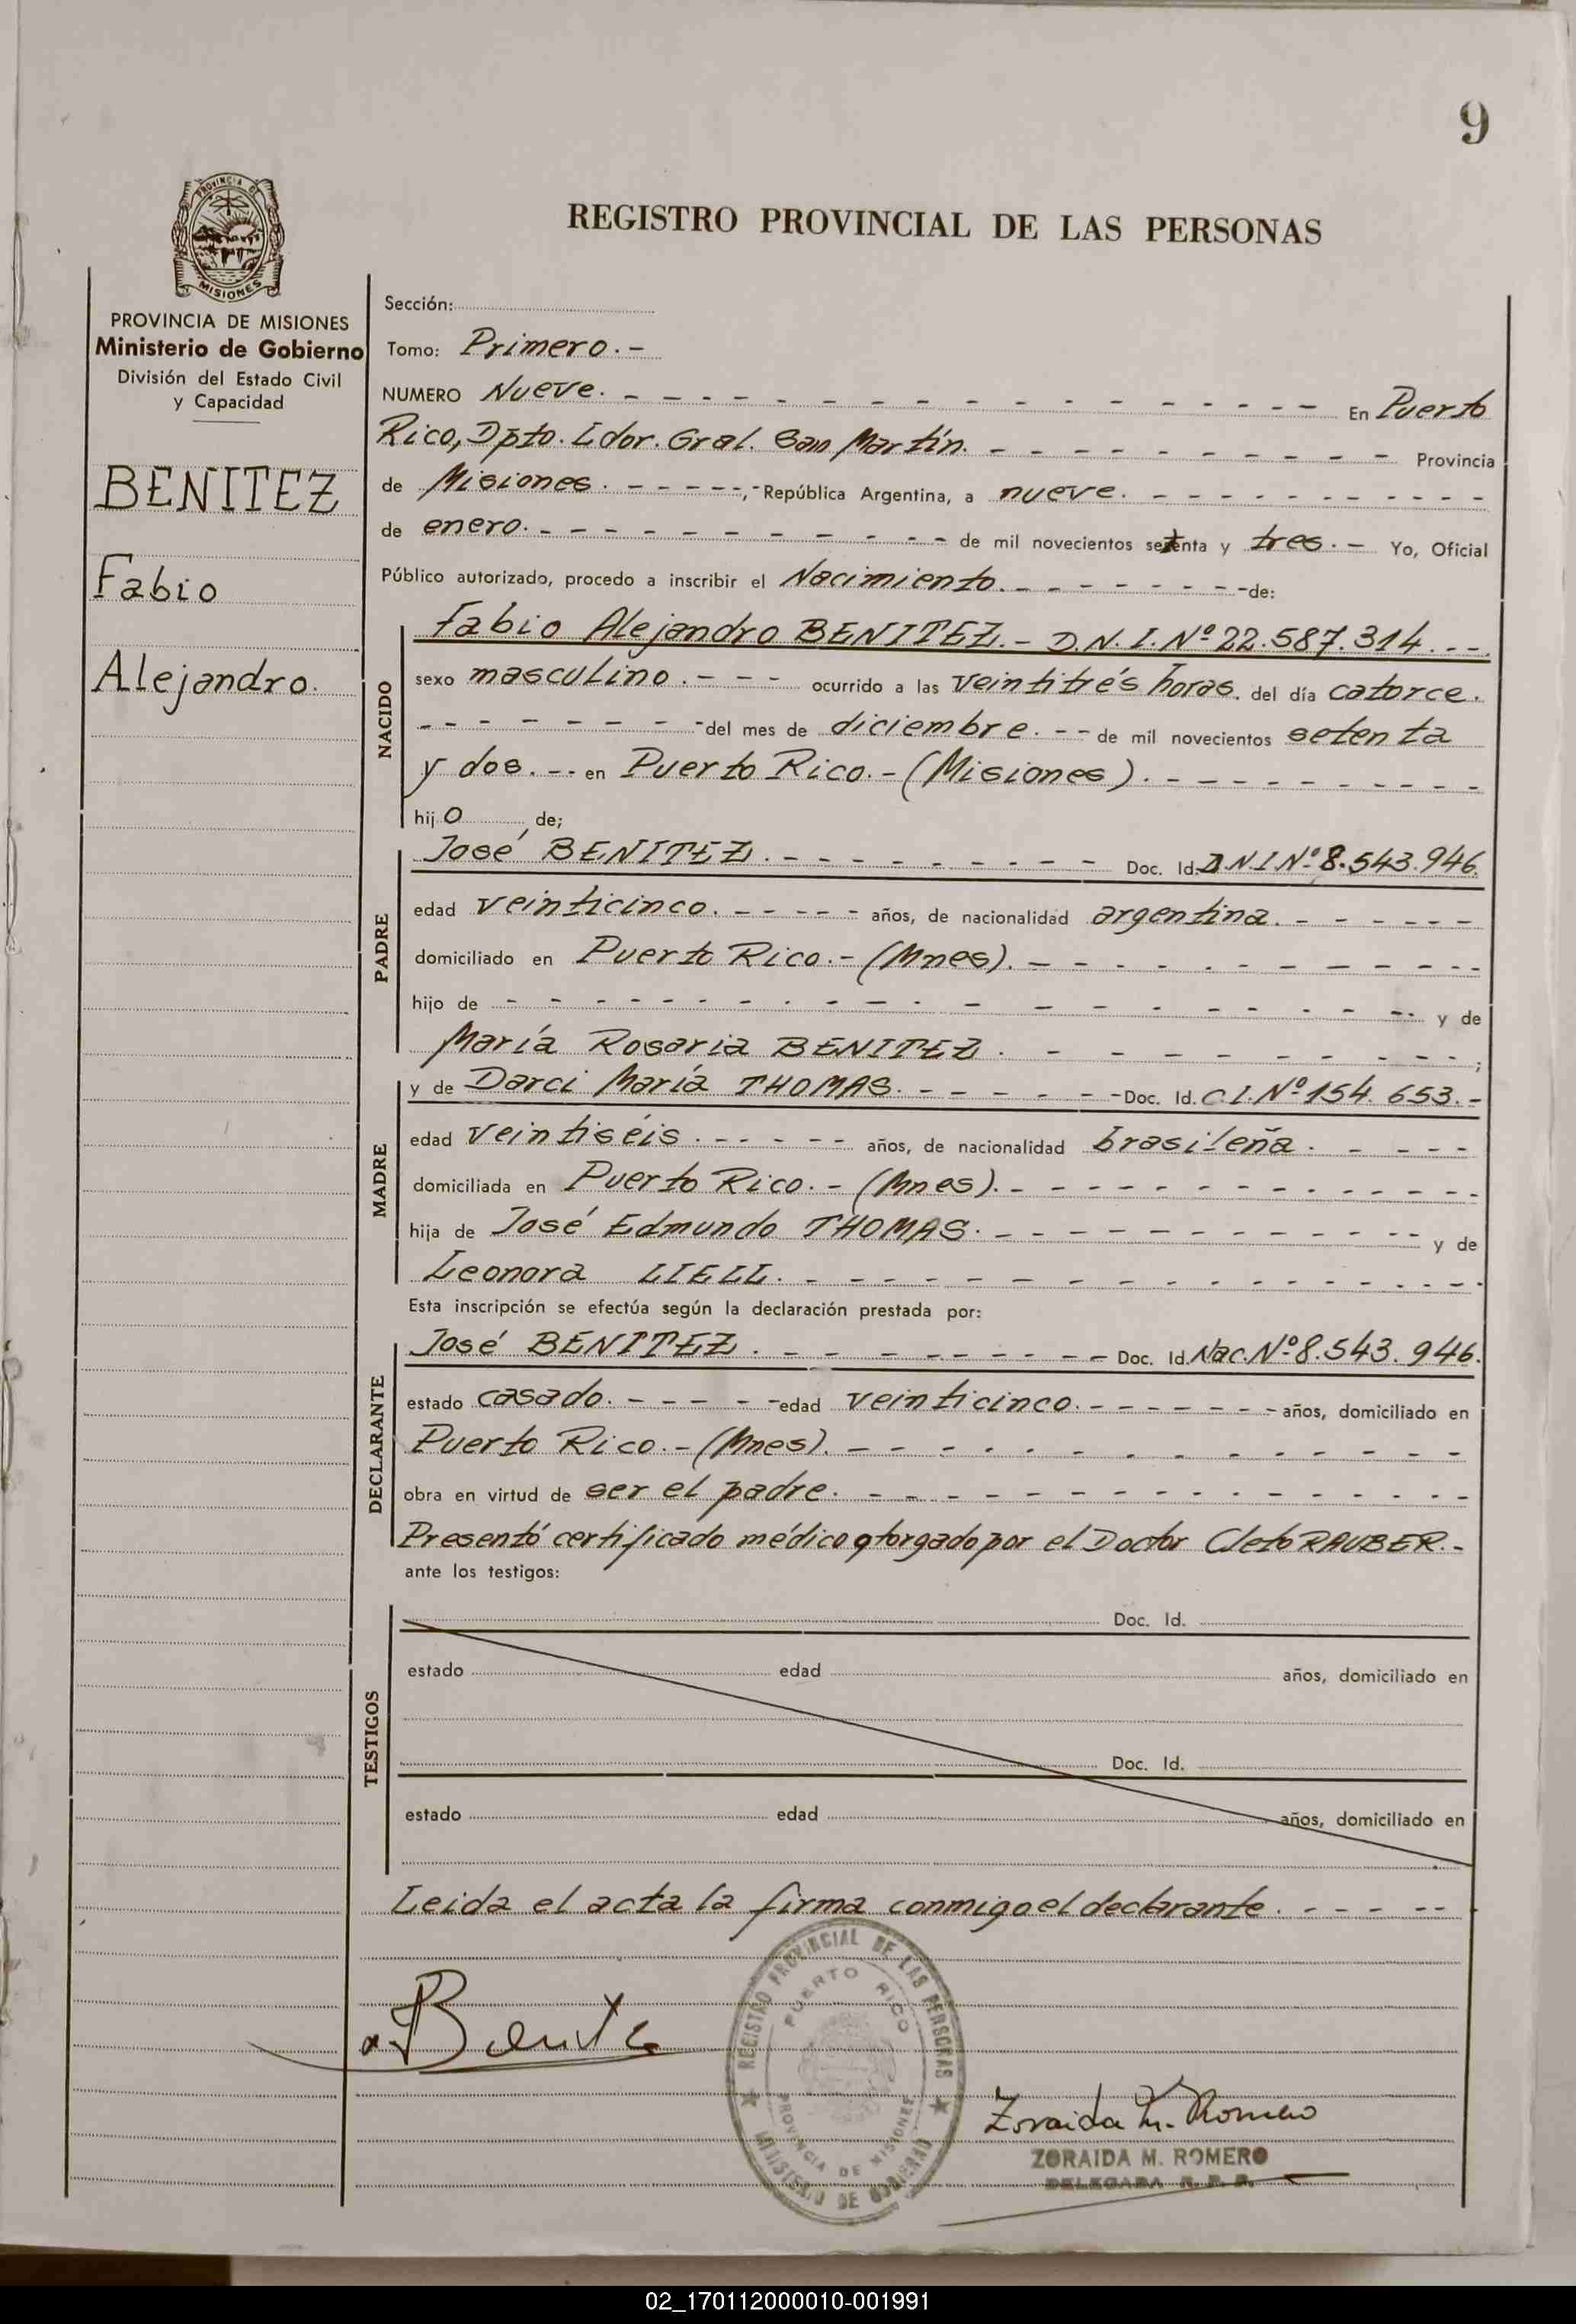 9
PROVINCIA DE
MISIONES
REGISTRO PROVINCIAL DE LAS PERSONAS
PROVINCIA DE MISIONES
Ministerio de Gobierno
División del Estado Civil
y Capacidad
BENITEZ
Fabio
Alejandro.
Sección:
Tomo: Primero.-
NUMERO Nueve. - - - - - - - - - - - - - - En Puerto
Rico, Dpto. Ldor. Gral. San Martín. - - - - - - - - - - Provincia
de Misiones. - - - - -, República Argentina, a nueve. - - - - - - - - - -
de enero. - - - - - - - - - - - de mil novecientos setenta y tres.- Yo, Oficial
Público autorizado, procedo a inscribir el Nacimiento. - - - - - - - - de:
NACIDO
Fabio Alejandro BENITEZ.- D.N.I.Nº 22.587.314. - -.
sexo masculino. - - - ocurrido a las veintitrés horas. del día catorce.
- - - - - - - - del mes de diciembre. - - de mil novecientos setenta
y dos. - - en Puerto Rico.- (Misiones). - - - - - - - - -
hijo de;
PADRE
José BENITEZ. - - - - - - - - - Doc. Id. D.N.I.Nº 8.543.946.
edad veinticinco. - - - - - años, de nacionalidad argentina. - - - - - -
domiciliado en Puerto Rico.- (Mnes). - - - - - - - - - - - -
hijo de - - - - - - - - - - - - - - - - - - - y de
María Rosaria BENITEZ. - - - - - - - - - ;
MADRE
y de Darci María THOMAS. - - - - - - Doc. Id. C.I.Nº 154.653.-
edad veintiséis. - - - - - años, de nacionalidad brasileña. - - - -
domiciliada en Puerto Rico.- (Mnes). - - - - - - - - - - - - -
hija de José Edmundo THOMAS. - - - - - - - - - - - y de
Leonora LIELL. - - - - - - - - - - - - - - -
Esta inscripción se efectúa según la declaración prestada por:
DECLARANTE
José BENITEZ. - - - - - - - - - Doc. Id. Nac.Nº 8.543.946.
estado casado. - - - - - edad veinticinco. - - - - - - - años, domiciliado en
Puerto Rico.- (Mnes). - - - - - - - - - - - - - -
obra en virtud de ser el padre. - - - - - - - - - - - - - - -
Presentó certificado médico otorgado por el Doctor Cleto RAUBER.-
ante los testigos:
TESTIGOS
Doc. Id.
estado edad años, domiciliado en
Doc. Id.
estado edad años, domiciliado en
Leida el acta la firma conmigo el declarante. - - - - -
REGISTRO PROVINCIAL DE LAS PERSONAS
PUERTO RICO
PROVINCIA DE MISIONES
MINISTERIO DE GOBIERNO
Zoraida M. Romero
ZORAIDA M. ROMERO
DELEGADA R. P. P.
02_170112000010-001991